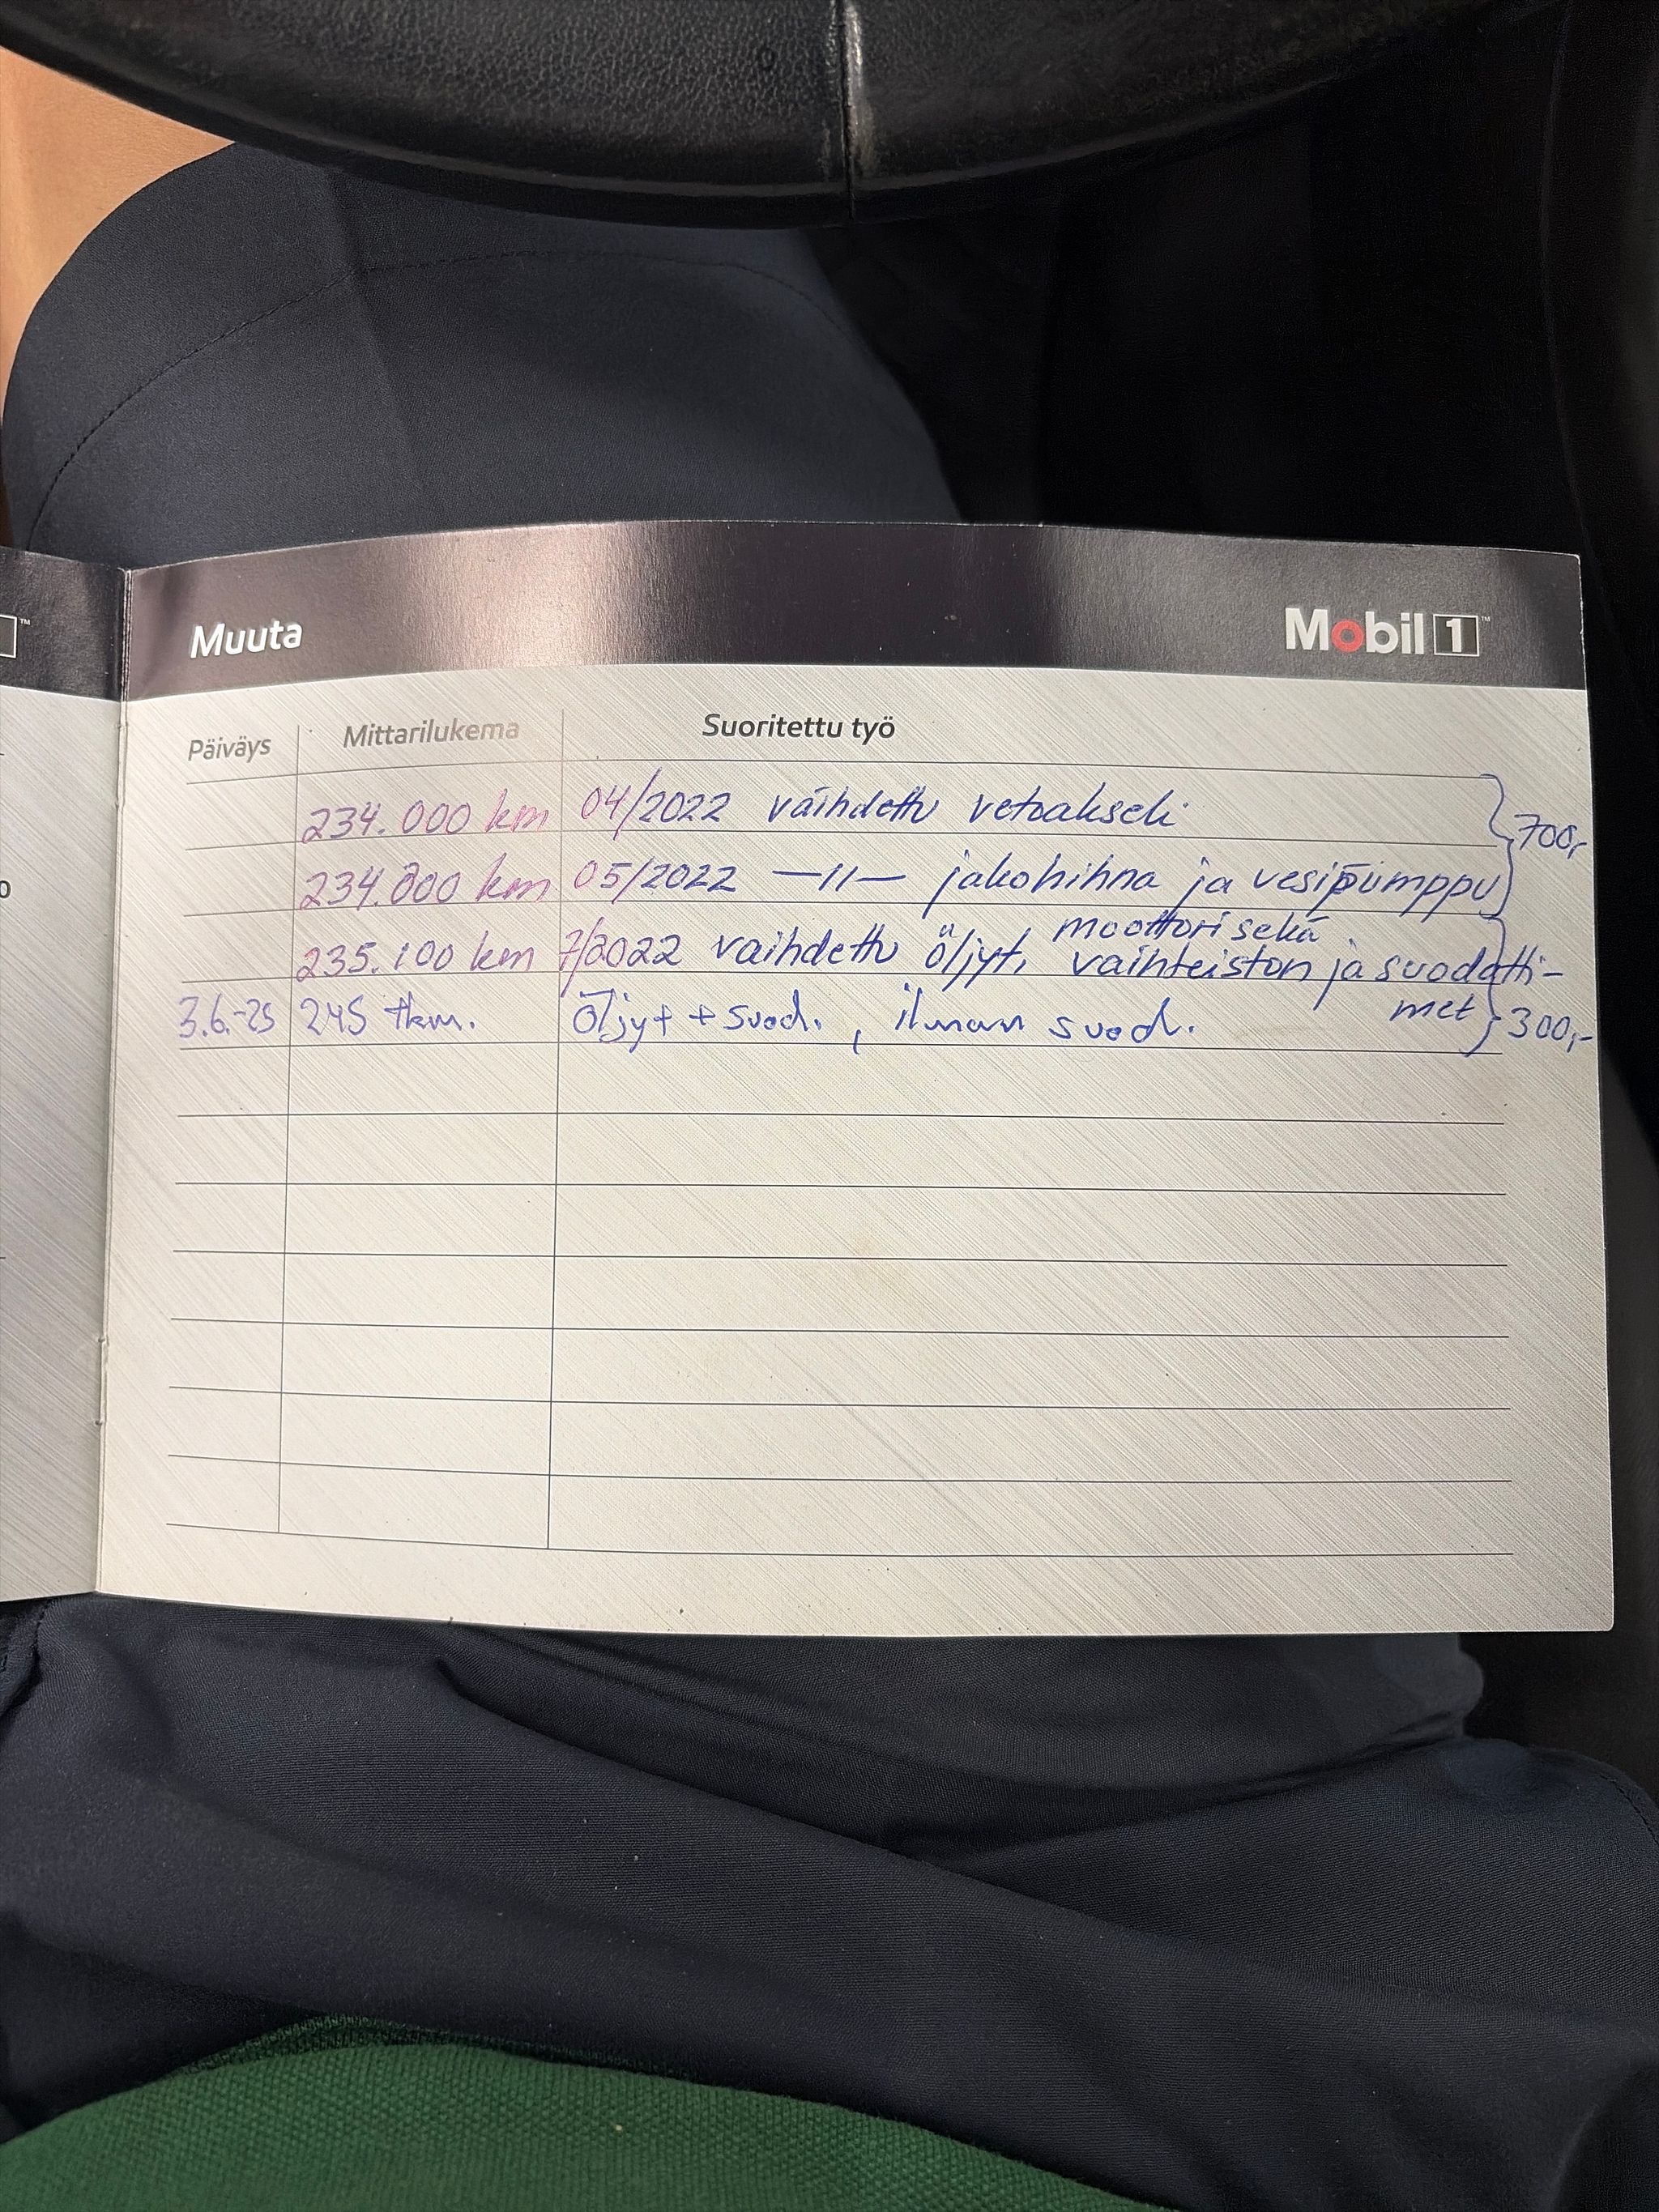 Muuta
Mobil 1™
Päiväys Mittarilukema Suoritettu työ
234.000 km 04/2022 vaihdettu vetoakseli
700,-
234.800 km 05/2022 —11— jakohihna ja vesipumppu
moottori sekä
235.100 km 7/2022 vaihdettu öljyt, vaihteiston ja suodatti-
met
3.6.-25 245 tkm. Öljyt + suod. , ilman suod.
300,-